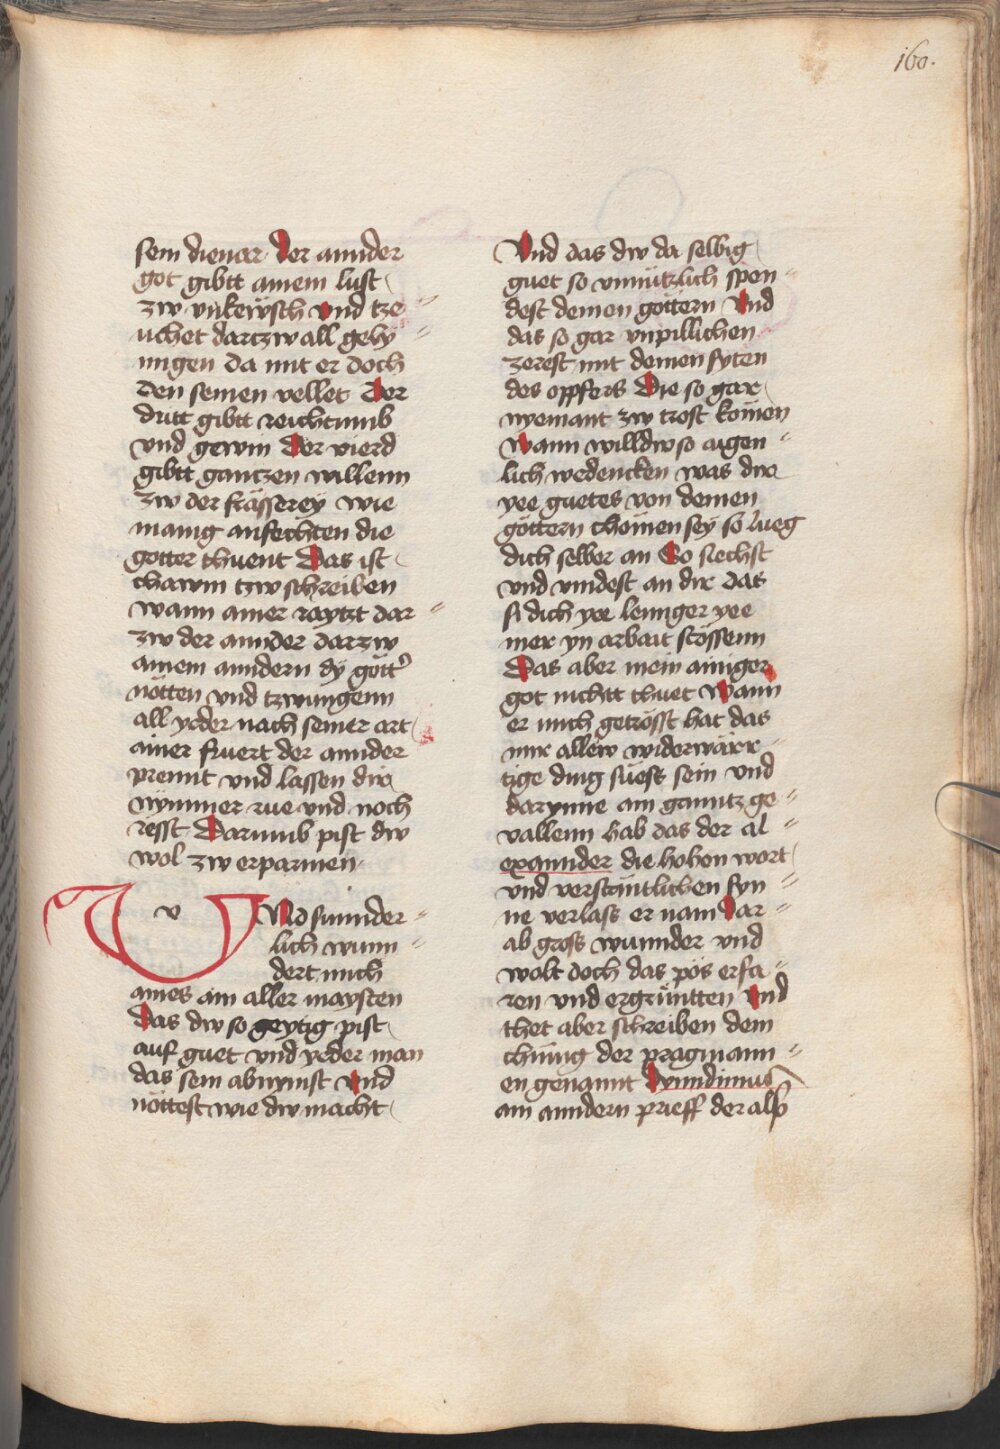 160.
sein diener Der annder
got gibtt ainem lust
zw vnkewsch vnd tze
uchet dartzw all gely
nngen da mit er doch
den seinen vellet Der
dritt gibtt reichtumb
vnd gewin Der vierd
gibtt ganntzen willenn
zw der frässerey wie
manig anfechten die
gotter thuent Das ist
chawm tzw schreiben
wann ainer raytzt dar
zw der annder darzw
ainem anndern dy gött
nötten vnd tzwungenn
all yeder nach seiner art
ainer fruert der annder
prennt vnd lassen dir
nymmer rue vnd noch
resst Darumb pist dw
wol zw erparmen
v
VNd sunnder
lich wunn
dert mich
aines am aller maysten
Das dw so geytig pist
auf guet vnd yeder man
das sein abnymst vnd
nöttest wie dw macht
Vnd das dw da selbig
guet so vnnützlich spen
dest deinen göttern Vnd
das so gar vnpillichen
zerest mit deinen syten
des oppfers Die so gar
nyemant zw trost komen
Wann willdw so aigen
lich wedencken was dir
yee guetes von deinen
göttern chömen sey so lueg
dich selber an So siechst
vnd vindest an dir das
si dich yee lennger yee
mer yn arbait stössenn
Das aber mein ainiger
got nichtt thuet Wann
er mich getrösst hat das
mir allew widerwärr
tige ding suess sein vnd
darynne ain ganntz ge
vallenn hab das der al
exannder die hohen wort
vnd verstäntlichen syn
ne verlass er nam Dar
ab gross wunnder vnd
wolt doch das pös erfa
ren vnd ergrüntten Vnd
thet aber schreiben dem
chunig der pragmann
en genannt Dyndimus
am anndern prieff der also